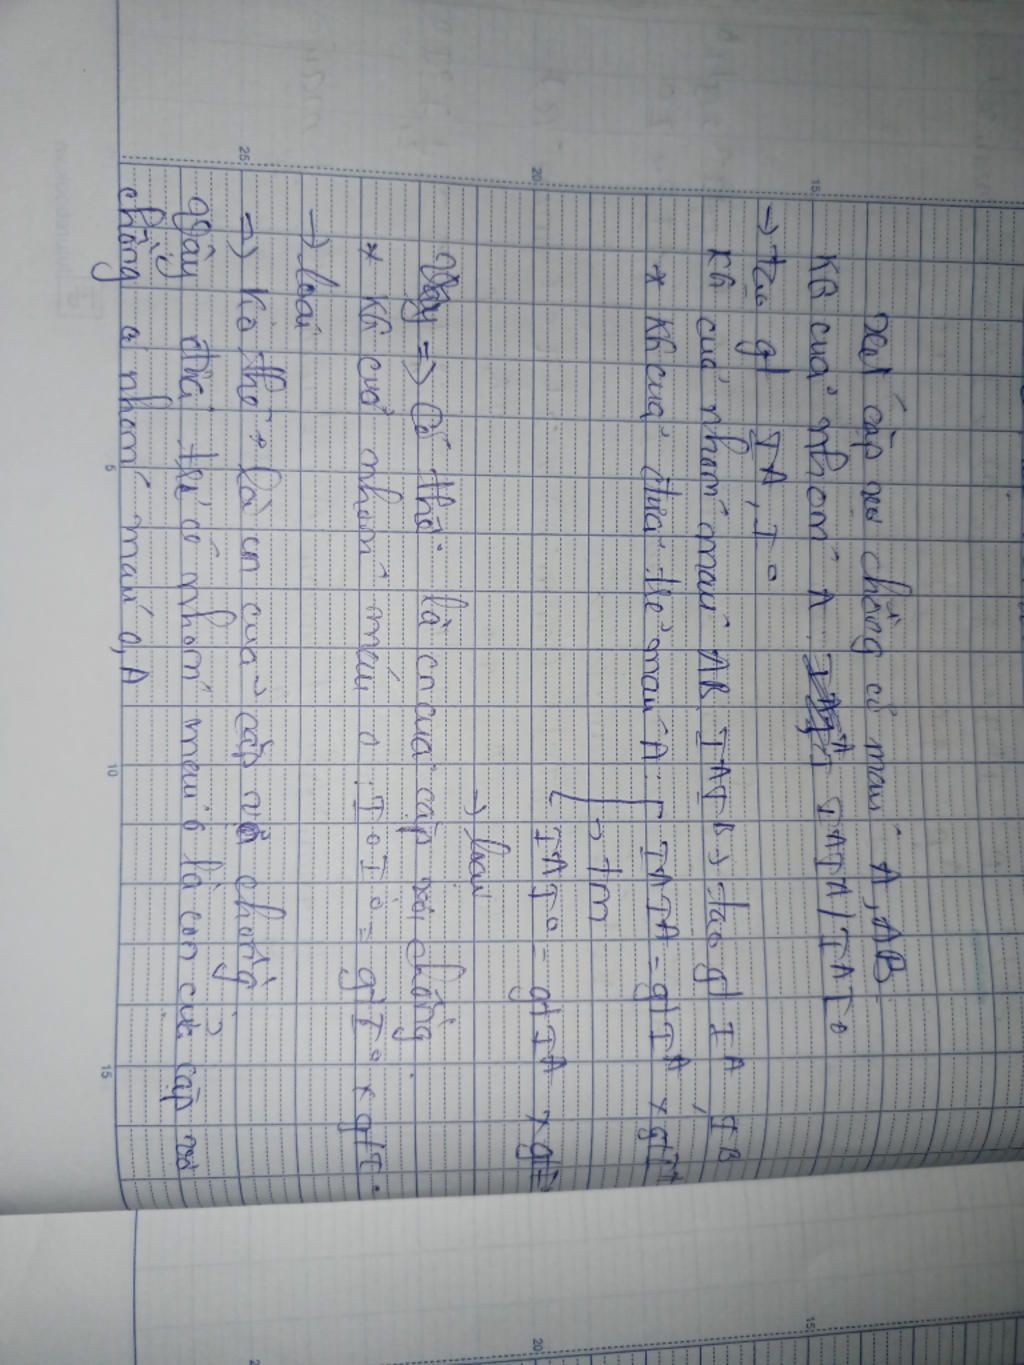 Xét cặp vợ chồng có máu A, AB
KG của nhóm A IAIA / IAIO
→ tạo gt IA, IO
KG của nhóm máu AB IAIB → tạo gt IA, IB
* KG của đứa trẻ máu A: IAIA = gt IA x gt IA
→ tm
IAIO = gt IA x gt IO
→ loại
Vậy => Có thể là cn của cặp vợ chồng.
* KG của nhóm máu O: IOIO = gt IO x gt IO
→ loại
=> Ko thể là cn của cặp vợ chồng
Vậy đứa trẻ có nhóm máu O là con của cặp vợ
chồng có nhóm máu O, A
15
20
25
5
10
15
15
20
2